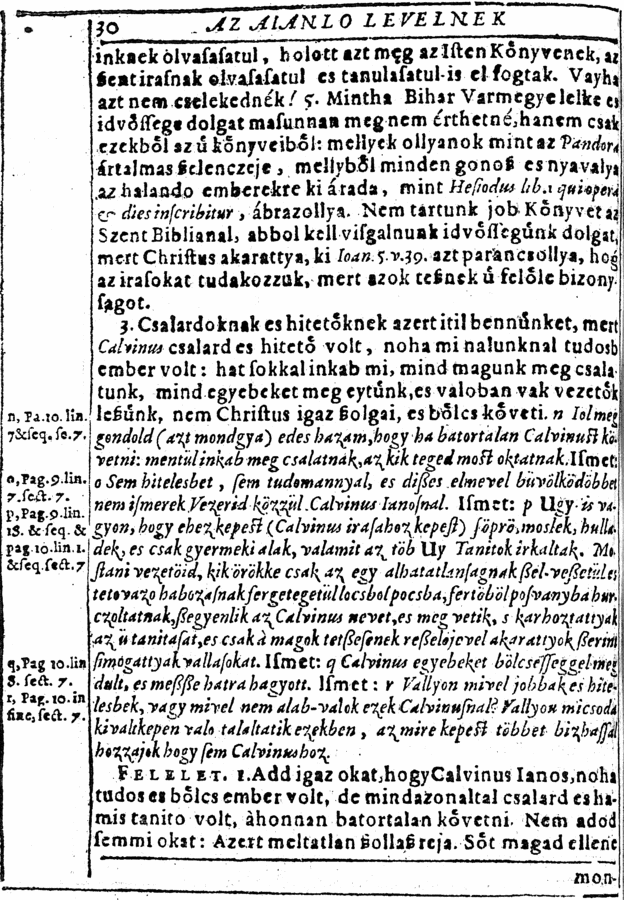 30
AZ AIANLO LEVELNEK
inknek òlvaſaſatul, holott azt meg az Iſten Kőnyvenek, az
ſentiraſnak olvaſaſatul es tanulaſatul-is el fogtak. Vayha
azt nem cselekednék! 5. Mintha Bihar Varmegye lelke es
idvőſſege dolgat maſunnan meg nem érthetné, hanem csak
ezekből az ű kőnyveiből: mellyek ollyanok mint az Pandora
ártalmas ſelenczeje, mellyből minden gonoß es nyavalya
az halando emberekre ki árada, mint Heſiodus lib. 1 qui opera
& dies inſcribitur, ábrazollya. Nem tartunk job Kőnyvet az
Szent Biblianal, abbol kell viſgalnunk idvőſſegűnk dolgat,
mert Chriſtus akarattya, ki Ioan. 5. v. 39. azt parancsollya, hog
az iraſokat tudakozzuk, mert azok teßnek ű felőle bizony-
ſagot.
3. Csalardoknak es hitetőknek azert itil bennűnket, mert
Calvinus csalard es hitető volt, noha mi nalunknal tudosb
ember volt: hat ſokkal inkab mi, mind magunk meg csala-
tunk, mind egyebeket meg eytűnk, es valoban vak vezetők
leßűnk, nem Chriſtus igaz ßolgai, es bőlcs kőveti. n Iol meg
gondold (azt mondgya) edes hazam, hogy ha batortalan Calvinuſt kö-
vetni: mentül inkab meg csalatnak, az kik teged moſt oktatnak. Iſmet:
o Sem hitelesbet, ſem tudomannyal, es dißes elmevel büvölködöbbet
nem iſmerek Vezerid közzül Calvinus Ianoſnal. Iſmet: p Ugy is va-
gyon, hogy ehez kepeſt (Calvinus iraſahoz kepeſt) ſöprö, moslek, hulla-
dek, es csak gyermeki alak, valamit az töb Uy Tanitok irkaltak. Mo-
ſtani vezetöid, kik örökke csak az egy alhatatlanſagnak ßel-veßetüles
tetovazo habozaſnak fergetegetül locsbol pocsba, fertöböl poſvanyba hur-
czoltatnak, ßegyenlik az Calvinus nevet, es meg vetik, s karhoztattyak
az ü tanitaſat, es csak à magok tetßeſenek reßelöjevel akarattyok ßerint
ſimogattyak vallaſokat. Iſmet: q Calvinus egyebeket bölcseſſeggel meg
dult, es meſßße hatra hagyott. Iſmet: r Vallyon mivel jobbak es hite-
lesbek, vagy mivel nem alab-valok ezek Calvinuſnal? Vallyon micsoda
kivaltkepen valo talaltatik ezekben, az mire kepeſt többet bizhaſſal
hozzajok hogy ſem Calvinushoz.
FELELET. 1. Add igaz okat, hogy Calvinus Ianos, noha
tudos es bőlcs ember volt, de mindazonaltal csalard es ha-
mis tanito volt, àhonnan batortalan kővetni. Nem adod
ſemmi okat: Azert meltatlan ßollaß reja. Sőt magad ellene
mon-
n, Pa. 10. lin.
7 & ſeq. ſe. 7.
o, Pag. 9. lin.
7. ſect. 7.
p, Pag. 9. lin.
18. & ſeq. &
pag. 10. lin. 1.
& ſeq. ſect. 7
q, Pag 10. lin
8. ſect. 7.
r, Pag. 10. in
fine, ſect. 7.